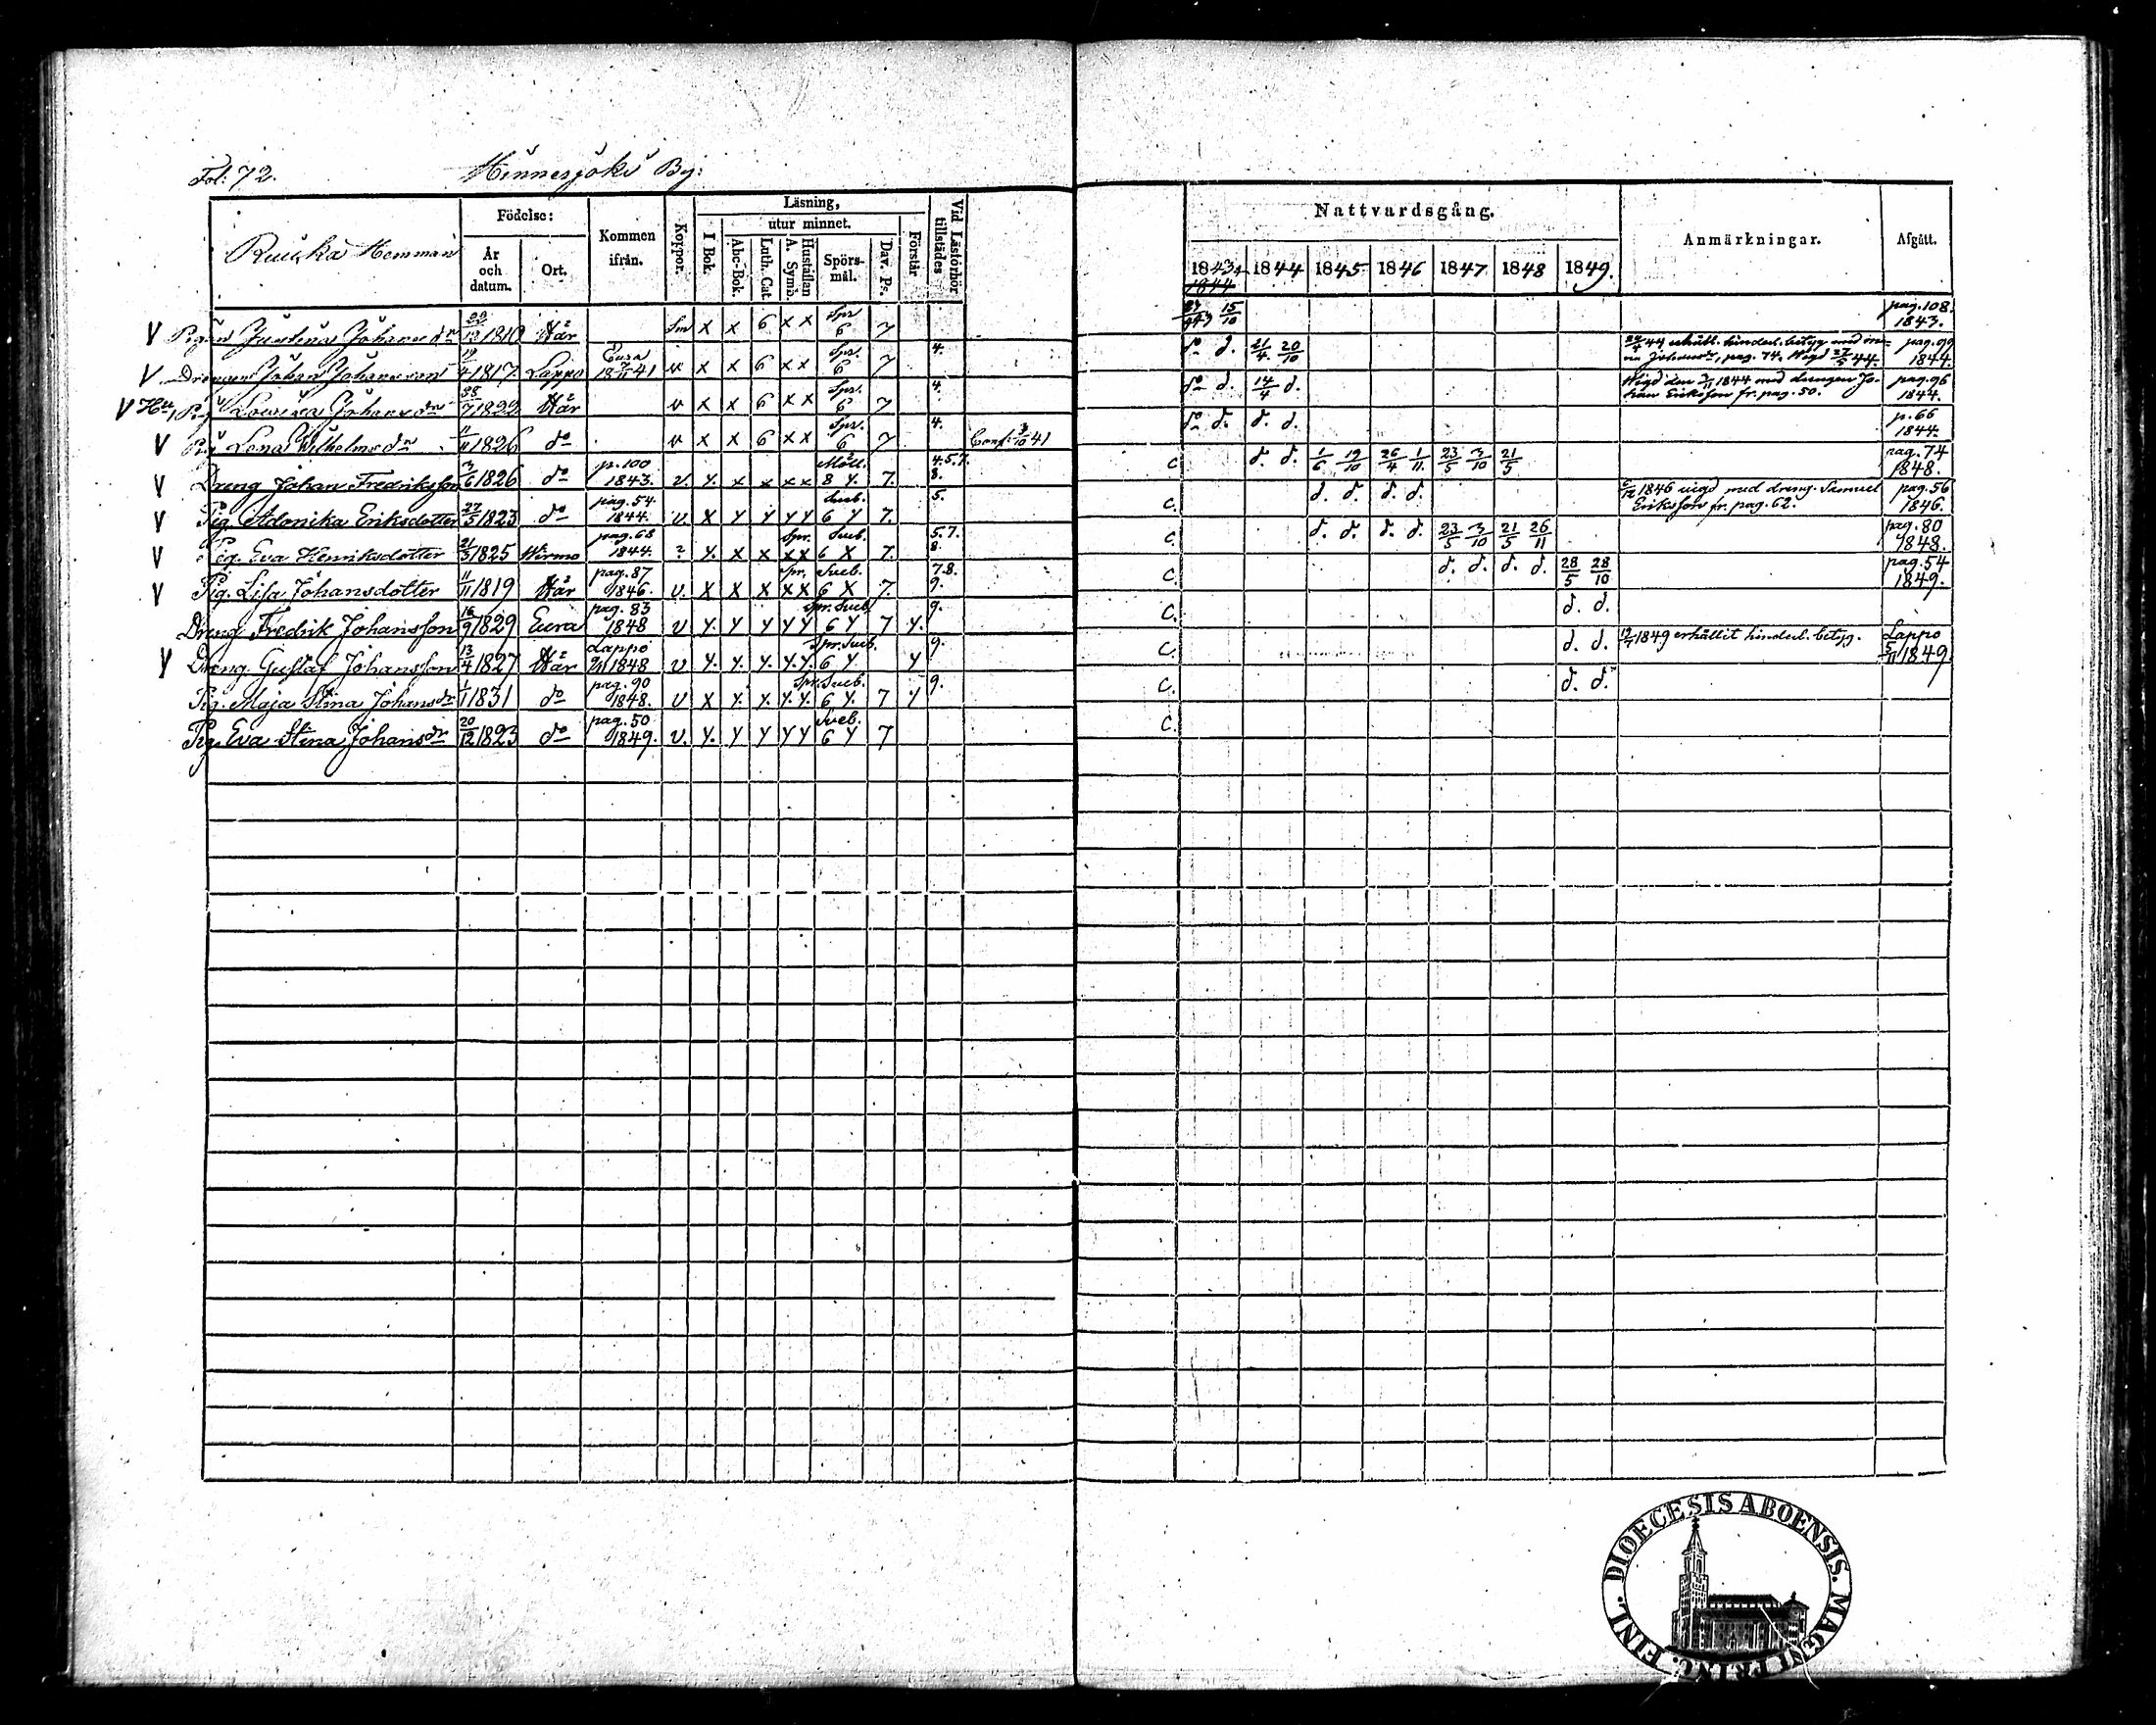 Fol: 72. Hinnerjoki By:
Ruuska Hemman
Födelse: År och datum. Ort. Kommen ifrån. Koppor. Läsning, I Bok. utur minnet. Abc-Bok. Luth. Cat. Hustaflan A. Symb. Spörs-mål. Dav. Ps. Förstår Vid Läsförhör tillstädes
Nattvardsgång. Anmärkningar. Afgått.
1843 1844 1844 1845 1846 1847 1848 1849.
V Pigan Justina Johans dr 1810 Här Sm x x 6 x x Spr 6 7 15/10 pag. 108. 1843.
V Drengen Johan Johansson 19/4 1817 Lappo Eura 18 41 v x x 6 x x Spr. 6 7 4. do d. 21/4 20/10 44 erhåll. hinderl. betyg med pag. 74. Wigd 44. pag. 99 1844.
V Pig Lovisa Johans dr Här v x x 6 x x Spr. 6 7 4. do d. 14/4 d. Wigd den 1844 med drengen Johan Eriksson fr. pag. 50. pag. 96 1844.
V Pig Lena Wilhelms dr 11/11 1826 do v x x 6 x x Spr. 6 7 4. Conf. 41 do d. d. d. p. 66 1844.
V Dreng Johan Fredriksson 3/6 1826 do p. 100 1843. v. y. x x x x 8 y. 7. 4.5.7. 8. c d. d. 1/6 19/10 26/4 1/11 23/5 3/10 21/5 pag. 74 1848.
V Pig. Adonika Eriksdotter 27/5 1823 do pag. 54 1844. v. x y y y y Sueb. 6 y 7. 5. c. d. d. d. d. 1846 vigd med dreng. Samuel Eriksson fr. pag. 62. pag. 56 1846.
V Pig. Eva Henriksdotter 21/3 1825 Wirmo pag. 68 1844. ? y. x x x x Spr. Sueb. 6 x 7. 5.7. 8. c. d. d. d. d. 23/5 3/10 21/5 26/11 pag. 80 1848.
V Pig. Lisa Johansdotter 11/11 1819 Här pag. 87 1846. v. x x x x x Spr. Sueb. 6 x 7. 7.8. 9. c. d. d. d. d. 28/5 28/10 pag. 54 1849.
Dreng Fredrik Johansson 16/9 1829 Eura pag. 83 1848 v y. y y y y Spr. Sueb. 6 y 7 y. 9. c. d. d.
V Dreng. Gustaf Johansson 13/4 1827 Här Lappo 1848 v y. y. y. y. y. Spr. Sueb. 6 y. y 9. c. d. d. 1849 erhållit hinderl. betyg. Lappo 5/11 1849.
Pig. Maja Stina Johans dr 1/1 1831 do pag. 90 1848. v x y. x. y. y. Spr. Sueb. 6 y. 7 y 9. c. d. d.
Pig. Eva Stina Johans dr 20/12 1823 do pag. 50 1849. v. y. y y y y Sueb. 6 y 7 c.
DIOECESIS ABOENSIS. MAGNI PRINC. FINL.